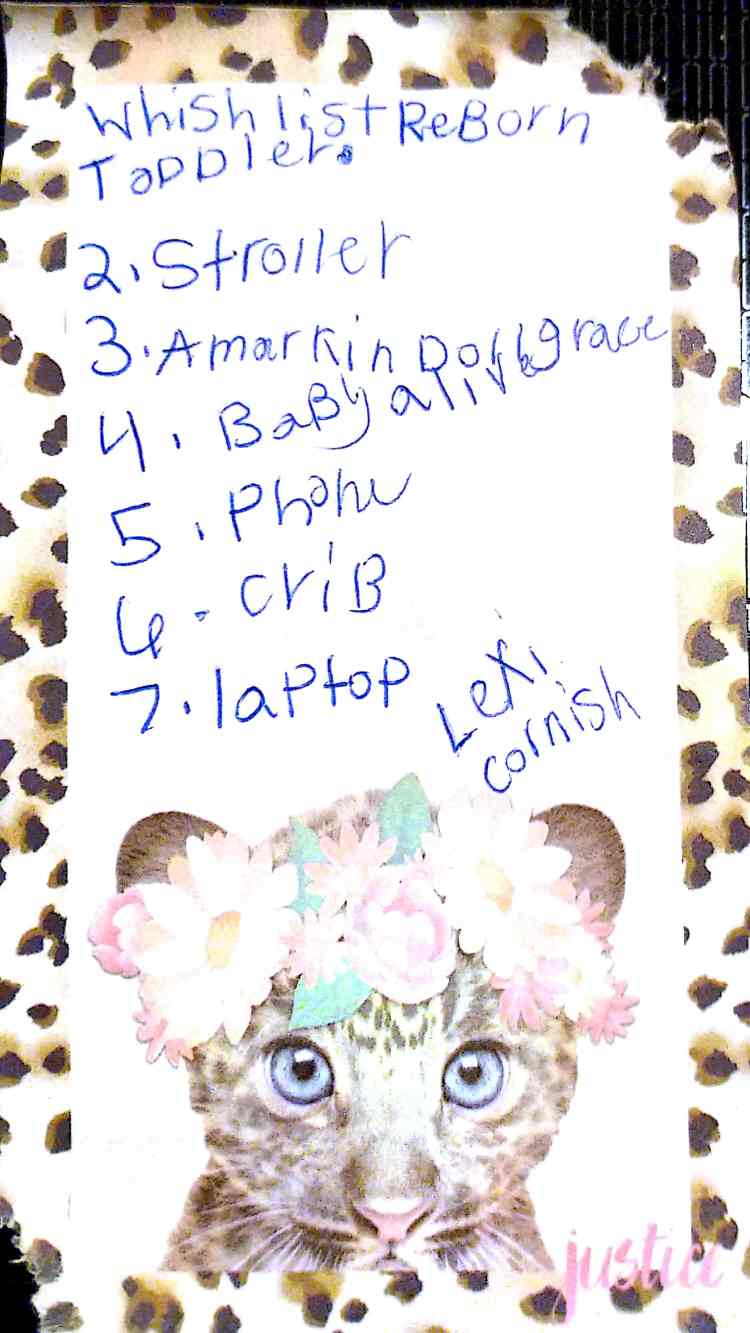 Whish list ReBorn
ToDDler.
2. Stroller
3. Amarkin Doll grace
4. BaBy alive
5. Phone
6. criB
7. laptop
Lexi
cornish
justice